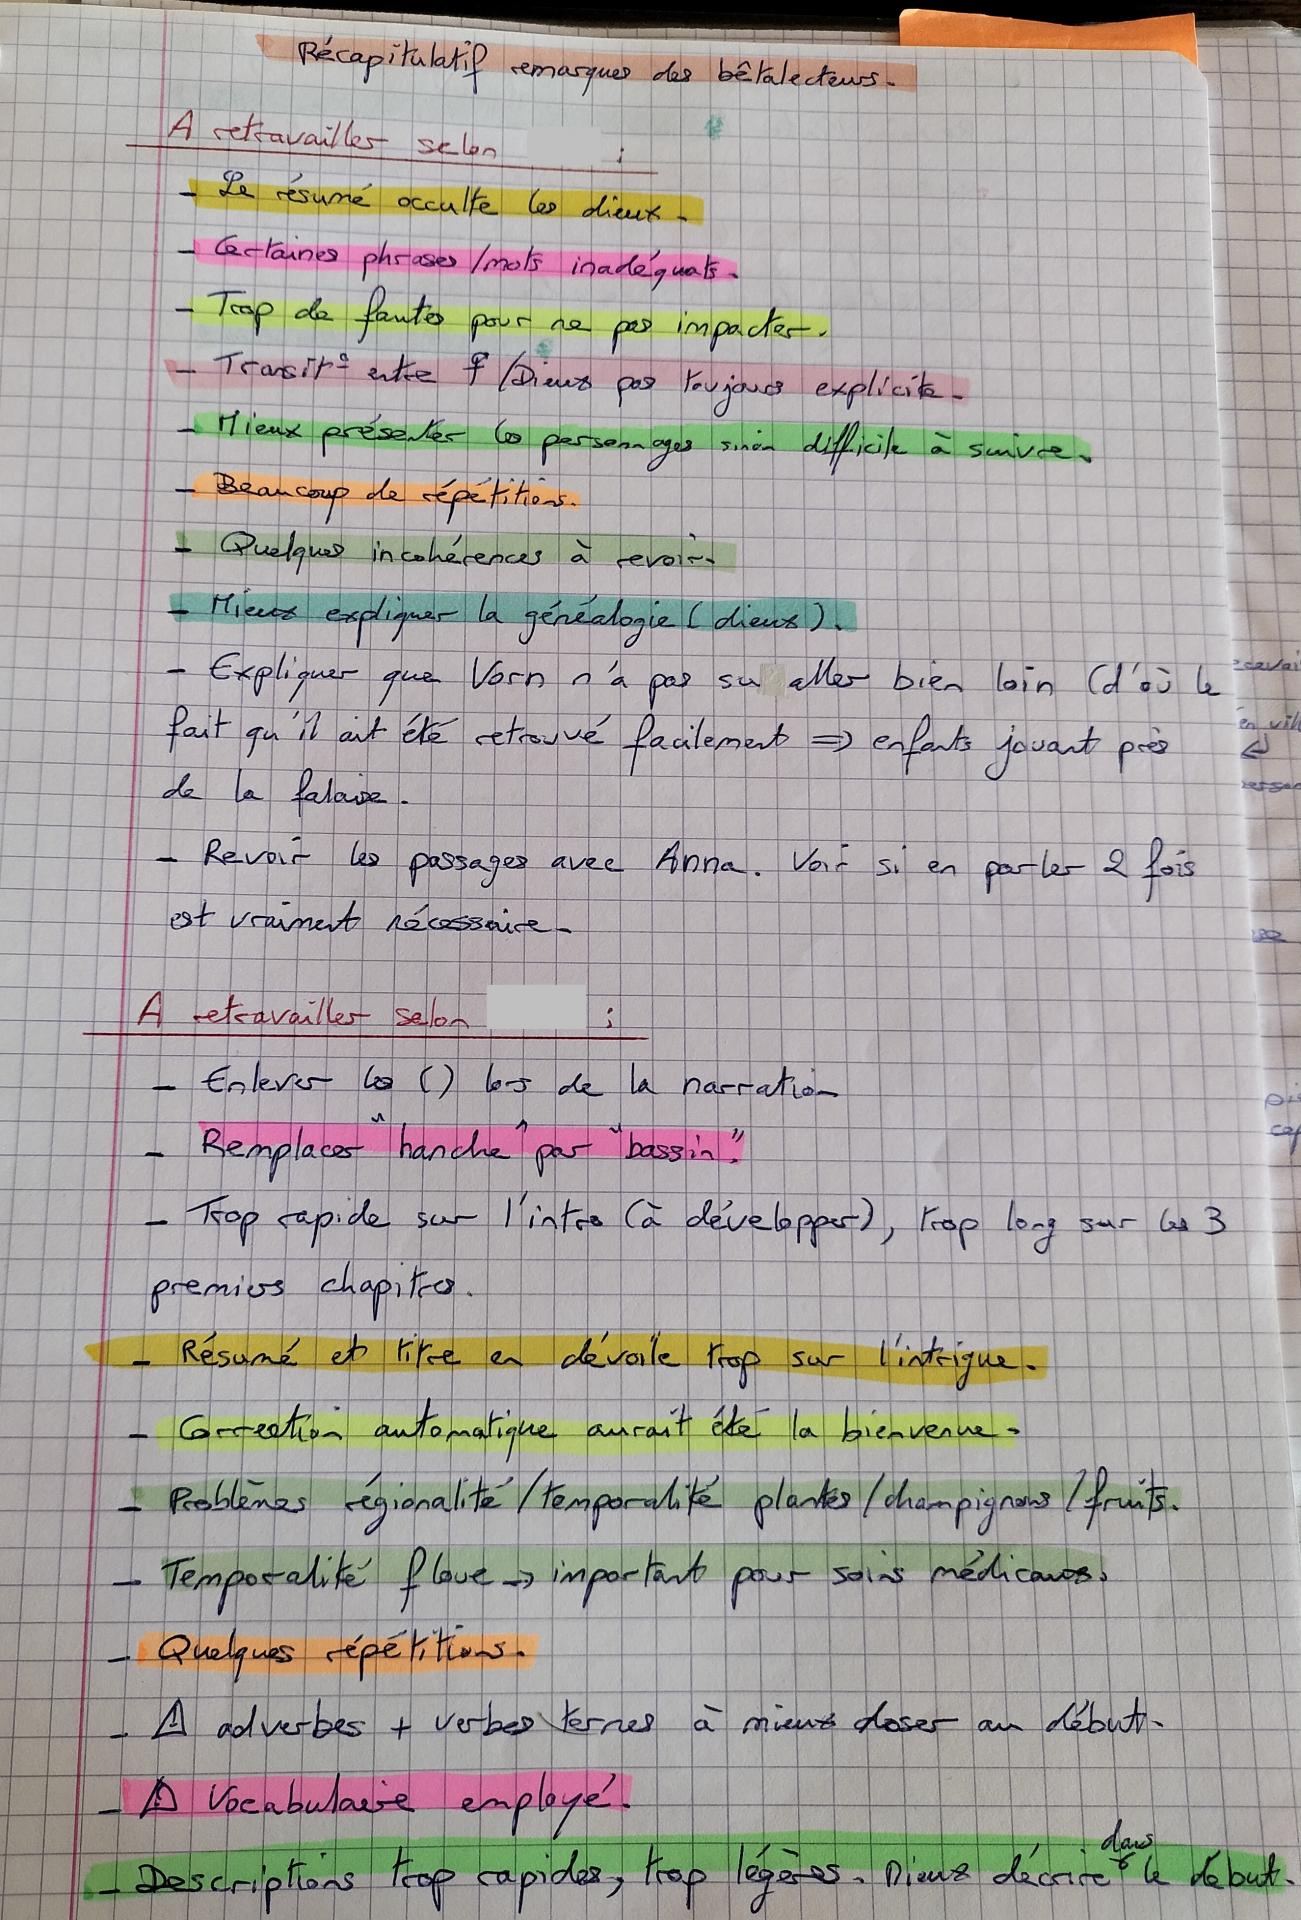 Récapitulatif remarques des bêtalecteurs.
A retravailler selon :
- Le résumé occulte les dieux.
- Certaines phrases/mots inadéquats.
- Trop de fautes pour ne pas impacter.
- Transit° entre /Dieux pas toujours explicite.
- Mieux présenter les personnages sinon difficile à suivre.
- Beaucoup de répétitions.
- Quelques incohérences à revoir.
- Mieux expliquer la généalogie (dieux).
- Expliquer que Vorn n'a pas su aller bien loin (d'où le
fait qu'il ait été retrouvé facilement => enfants jouant près
de la falaise.
- Revoir les passages avec Anna. Voir si en parler 2 fois
est vraiment nécessaire.
A retravailler selon :
- Enlever les () lors de la narration
- Remplacer "hanche" par "bassin".
- Trop rapide sur l'intro (à développer), trop long sur les 3
premiers chapitres.
- Résumé et titre en dévoile trop sur l'intrigue.
- Correction automatique aurait été la bienvenue.
- Problèmes régionalité/temporalité plantes/champignons/fruits.
- Temporalité floue -> important pour soins médicaux.
- Quelques répétitions.
- ⚠ adverbes + verbes ternes à mieux doser au début.
- ⚠ Vocabulaire employé.
- Descriptions trop rapides, trop légères. Mieux décrire dans le début.